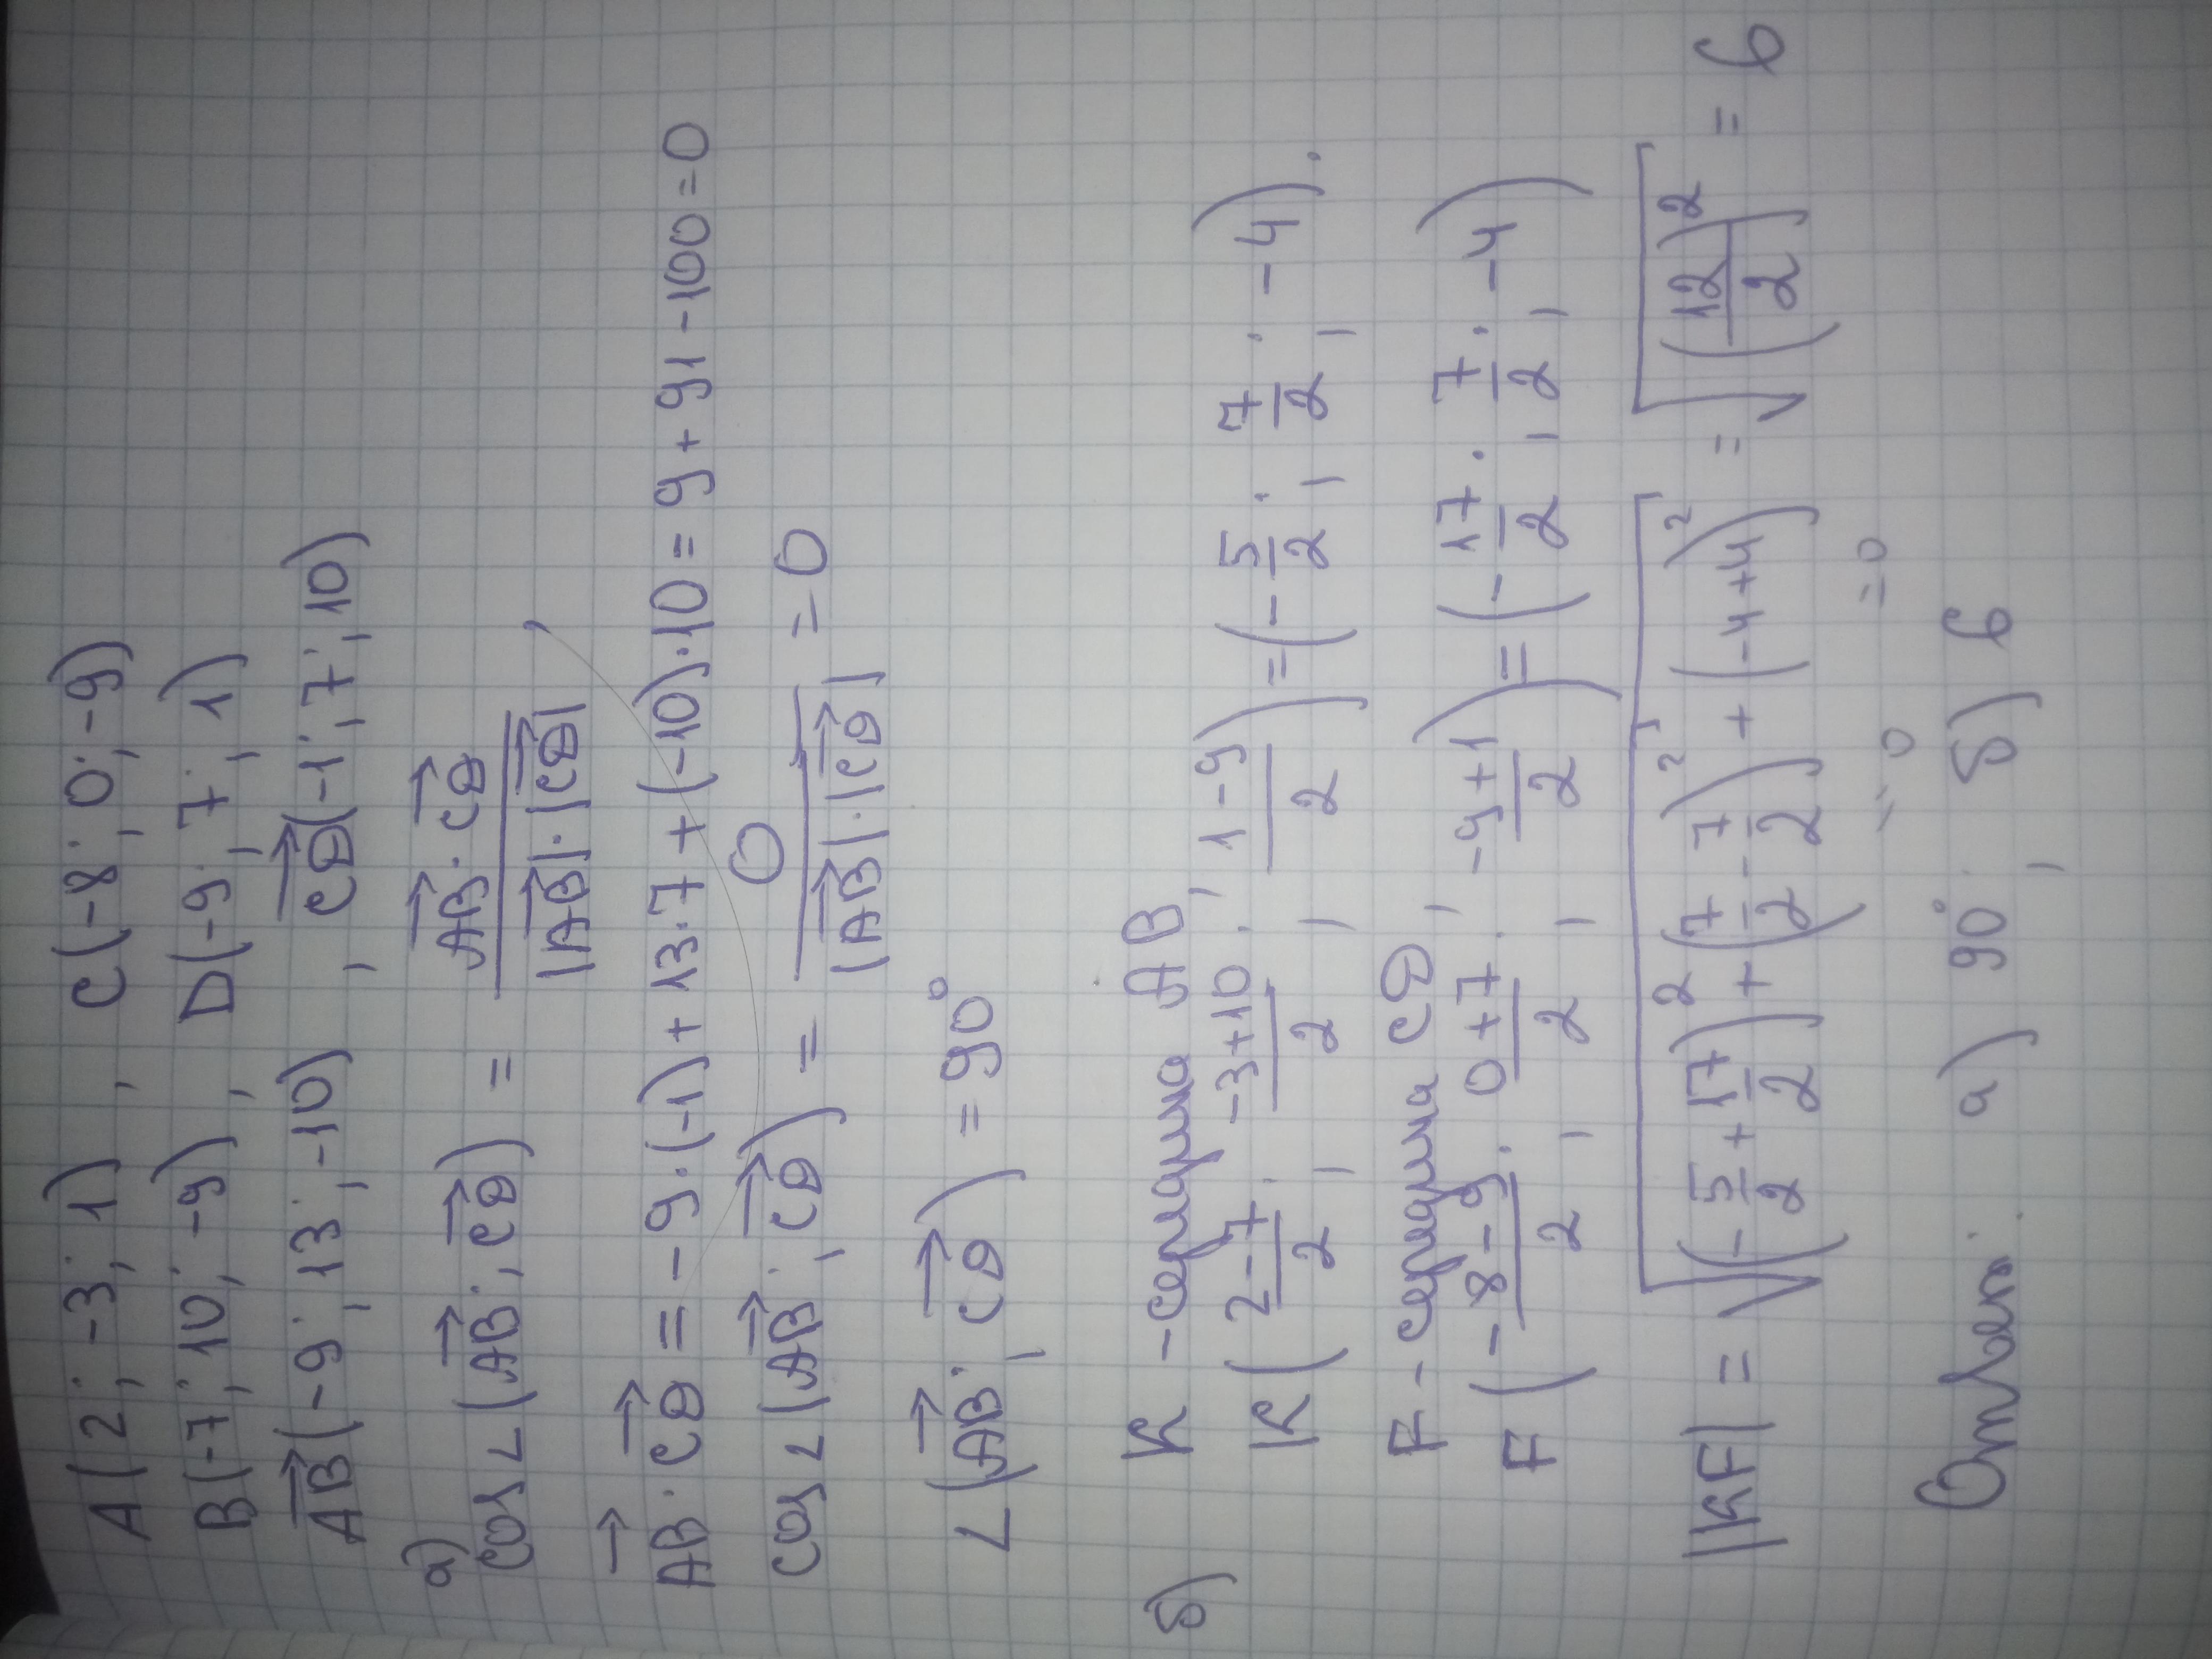 A(2; -3; 1), C(-8; 0; -9)
B(-7; 10; -9), D(-9; 7; 1)
AB→(-9; 13; -10), CD→(-1; 7; 10)
а) cos∠(AB→; CD→) = (AB→ · CD→) / (|AB→| · |CD→|)
AB→ · CD→ = -9·(-1) + 13·7 + (-10)·10 = 9 + 91 - 100 = 0
cos∠(AB→; CD→) = 0 / (|AB→| · |CD→|) = 0
∠(AB→; CD→) = 90°
б) K - середина AB,
K((2-7)/2; (-3+10)/2; (1-9)/2) = (-5/2; 7/2; -4).
F - середина CD,
F((-8-9)/2; (0+7)/2; (-9+1)/2) = (-17/2; 7/2; -4)
|KF| = √((-5/2 + 17/2)² + (7/2 - 7/2)² + (-4+4)²) = √((12/2)²) = 6
= 0 = 0
Ответ: а) 90°; б) 6